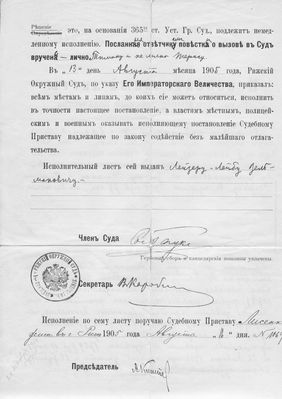 Рѣшеніе
это, на основаніи 365 ст. Уст. Гр. Суд., подлежитъ немед-
ленному исполненію. Посланная отвѣтчику повѣстка о вызовѣ въ Судъ
вручена — лично.
Въ „13" день Августа мѣсяца 1905 года, Рижскій
Окружный Судъ, по указу Его Императорскаго Величества, приказалъ:
всѣмъ мѣстамъ и лицамъ, до коихъ сіе можетъ относиться, исполнить
въ точности настоящее постановленіе, а властямъ мѣстнымъ, полицей-
скимъ и военнымъ оказывать исполняющему постановленіе Судебному
Приставу надлежащее по закону содѣйствіе безъ малѣйшаго отлага-
тельства.
Исполнительный листъ сей выданъ Лейзеру-Лейбу Зель-
мановичу
Членъ Суда
Гербовый сборъ и канцелярскія пошлины уплачены.
Секретарь
Исполненіе по сему листу поручаю Судебному Приставу
1905 года Августа дня. №
Предсѣдатель